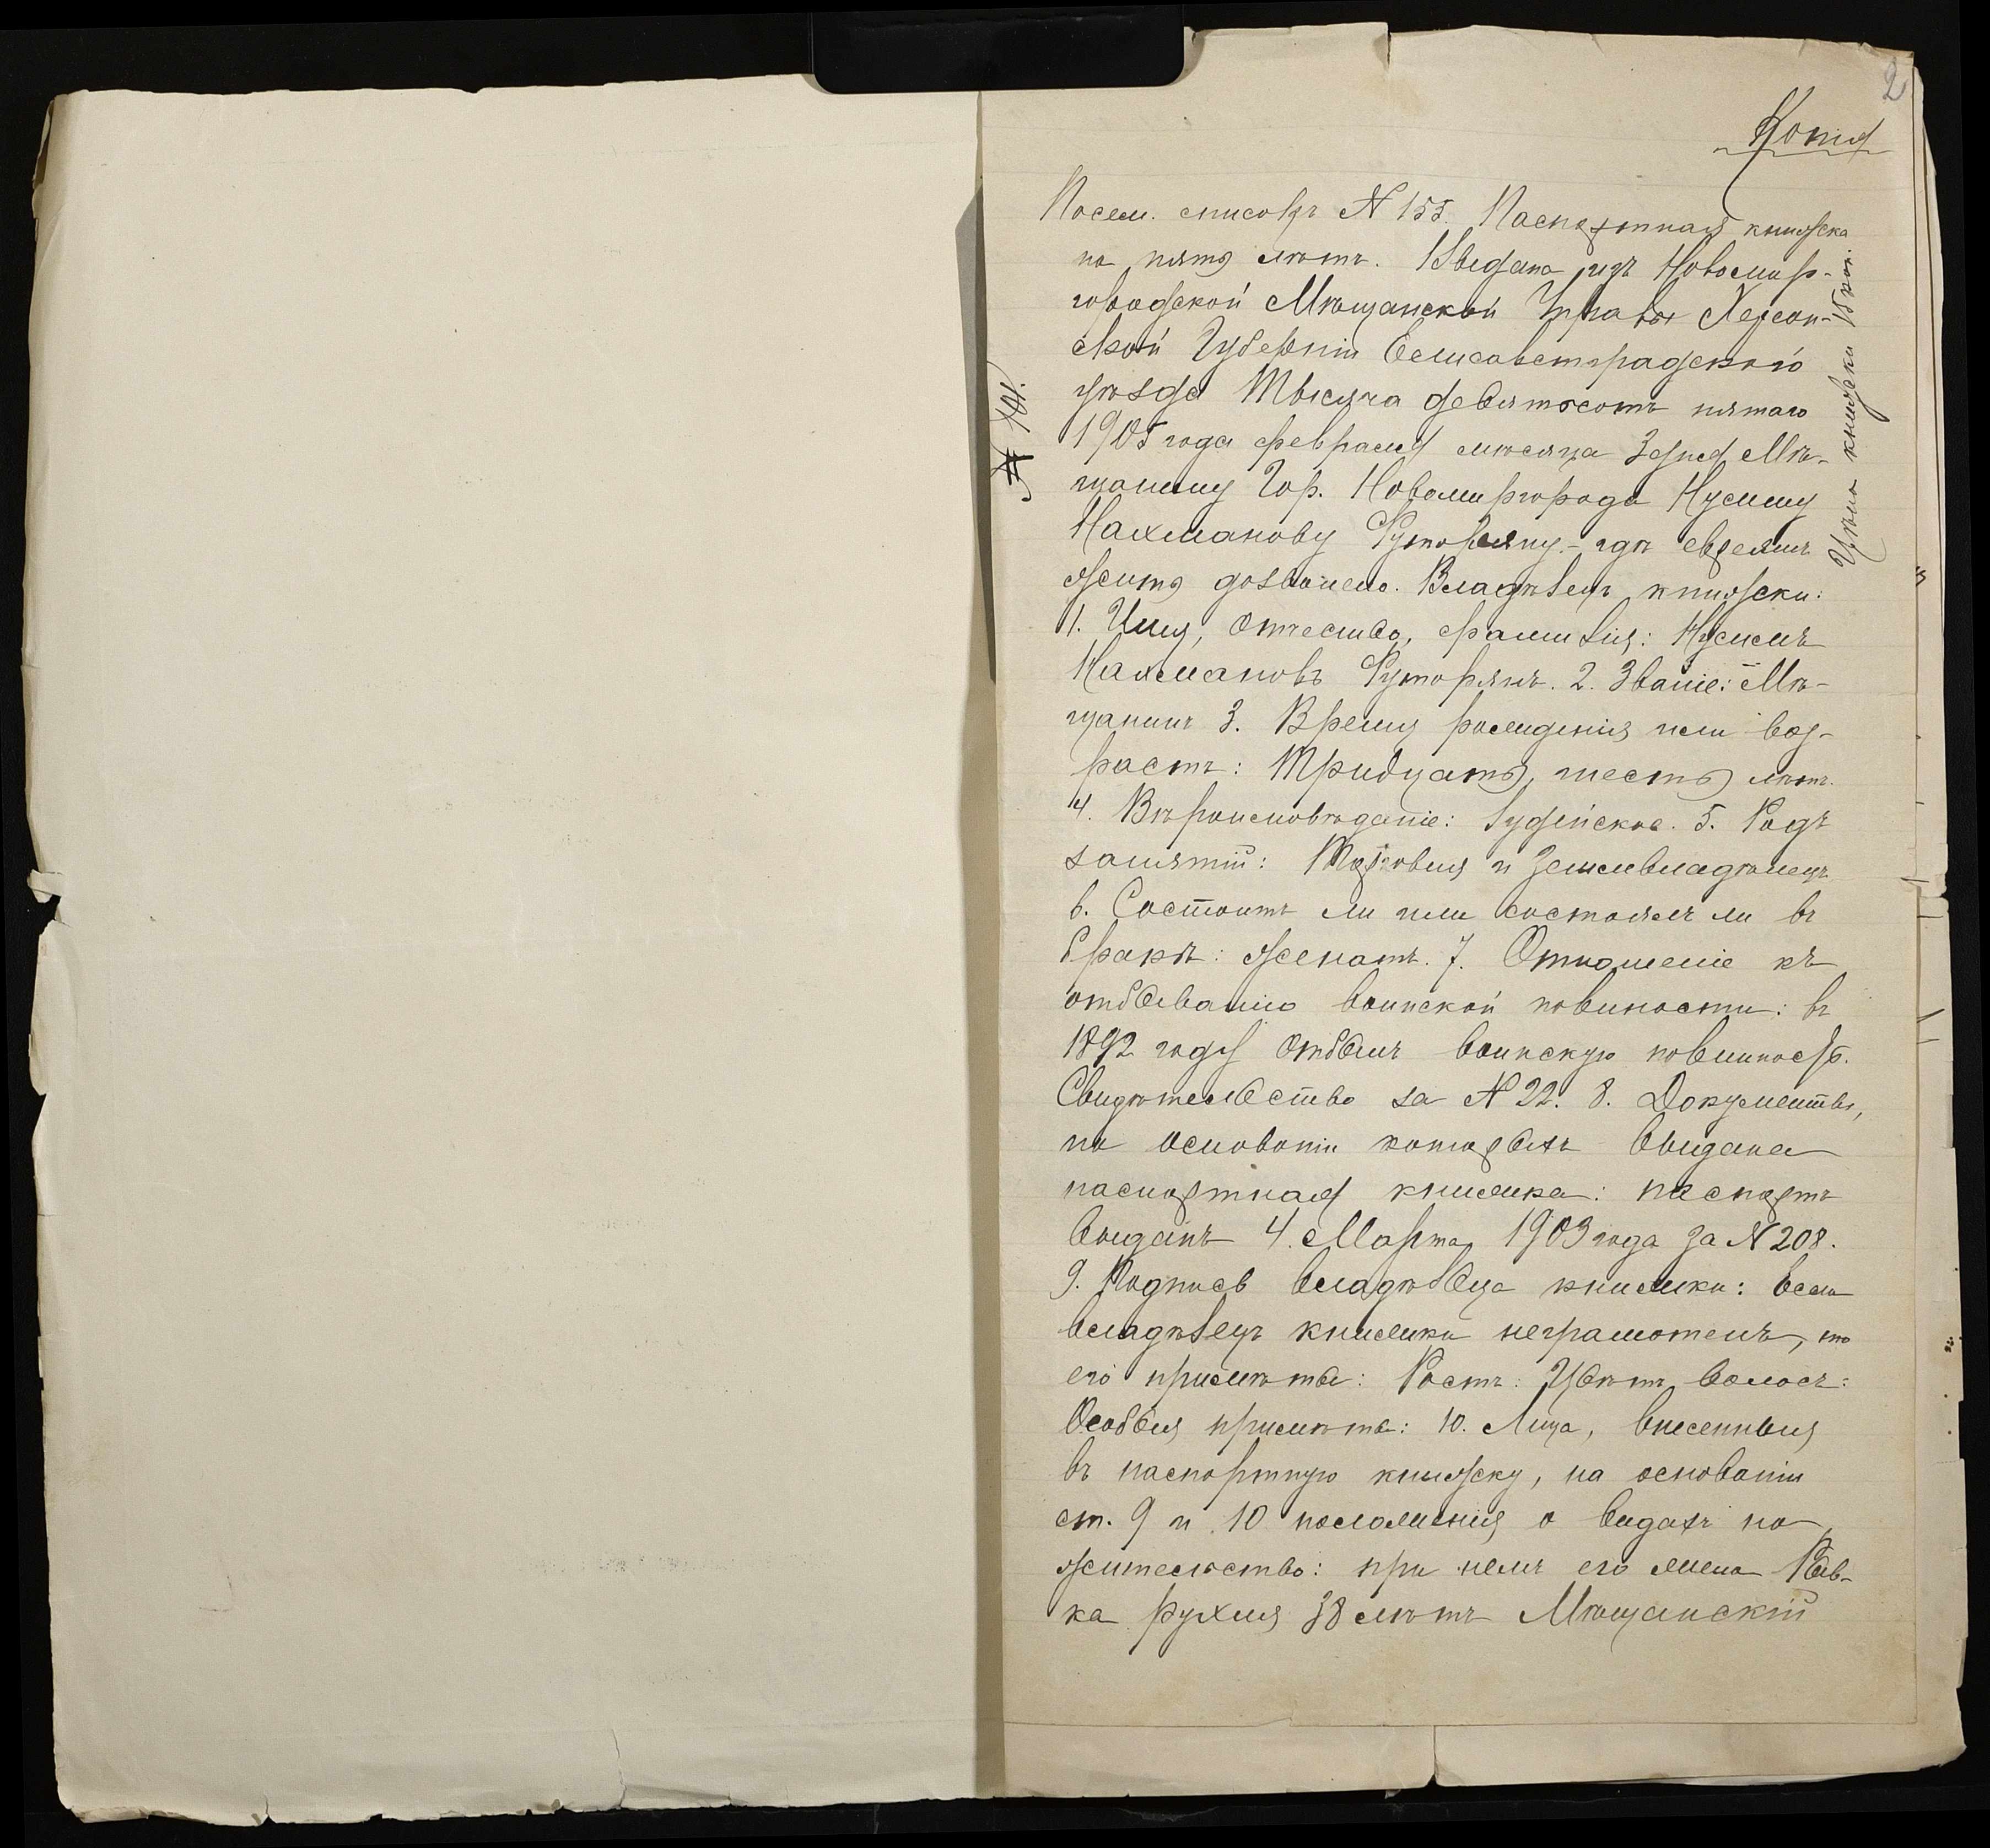 2
Копія
Посем. списокъ N 155. Паспортная книжка
на пять лѣтъ. Выдана изъ Новомир-
городской Мѣщанской Управы Херсон-
ской Губерніи Елисаветградского
уѣзда Тысяча девятьсотъ пятаго
1905 года февраля мѣсяца 3 дня Мѣ-
щанину Гор. Новомиргорода Нусиму
Нахманову Руторяну - гдѣ евреямъ
жить дозволено. Владѣлецъ книжки:
1. Имя, отчество, фамилія: Нусимъ
Нахмановъ Руторянъ. 2. Званіе: Мѣ-
щанинъ 3. Время рожденія или воз-
растъ: Тридцать шесть лѣтъ.
4. Вѣроисповѣданіе: Іудейское. 5. Родъ
занятій: Торговля и Землевладѣлецъ
6. Состоитъ ли или состоялъ ли въ
бракѣ: женатъ. 7. Отношеніе къ
отбыванію воинской повиности: въ
1892 году отбылъ воинскую повинность.
Свидѣтельство за N 22. 8. Документы,
на основаніи которыхъ выдана
паспортная книжка: паспортъ
выданъ 4 Марта 1903 года за N 208.
9. Подпись владѣльца книжки: Если
владѣлецъ книжки неграмотенъ, то
его примѣты: Ростъ: Цвѣтъ волосъ:
Особыя примѣты: 10. Лица, внесенныя
въ паспортную книжку, на основаніи
ст. 9 и 10 положенія о видахъ на
жительство: при немъ его жена Рив-
ка рухля 38 лѣтъ Мѣщанскій
N 101.
Цѣна книжки 15 коп.